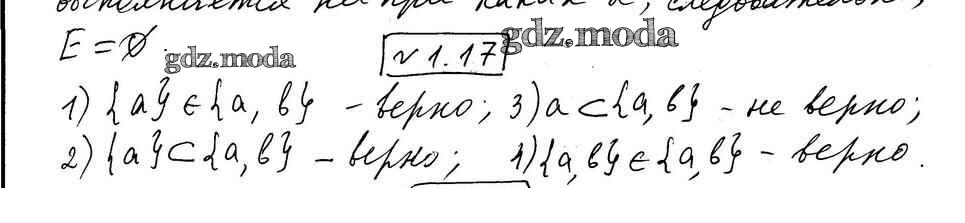 выполняется ни при каких x, следовательно,
E = ∅.
gdz.moda
№1.17
gdz.moda
1) {a} ∈ {a, b} - верно; 3) a ⊂ {a, b} - не верно;
2) {a} ⊂ {a, b} - верно; 4) {a, b} ∈ {a, b} - верно.